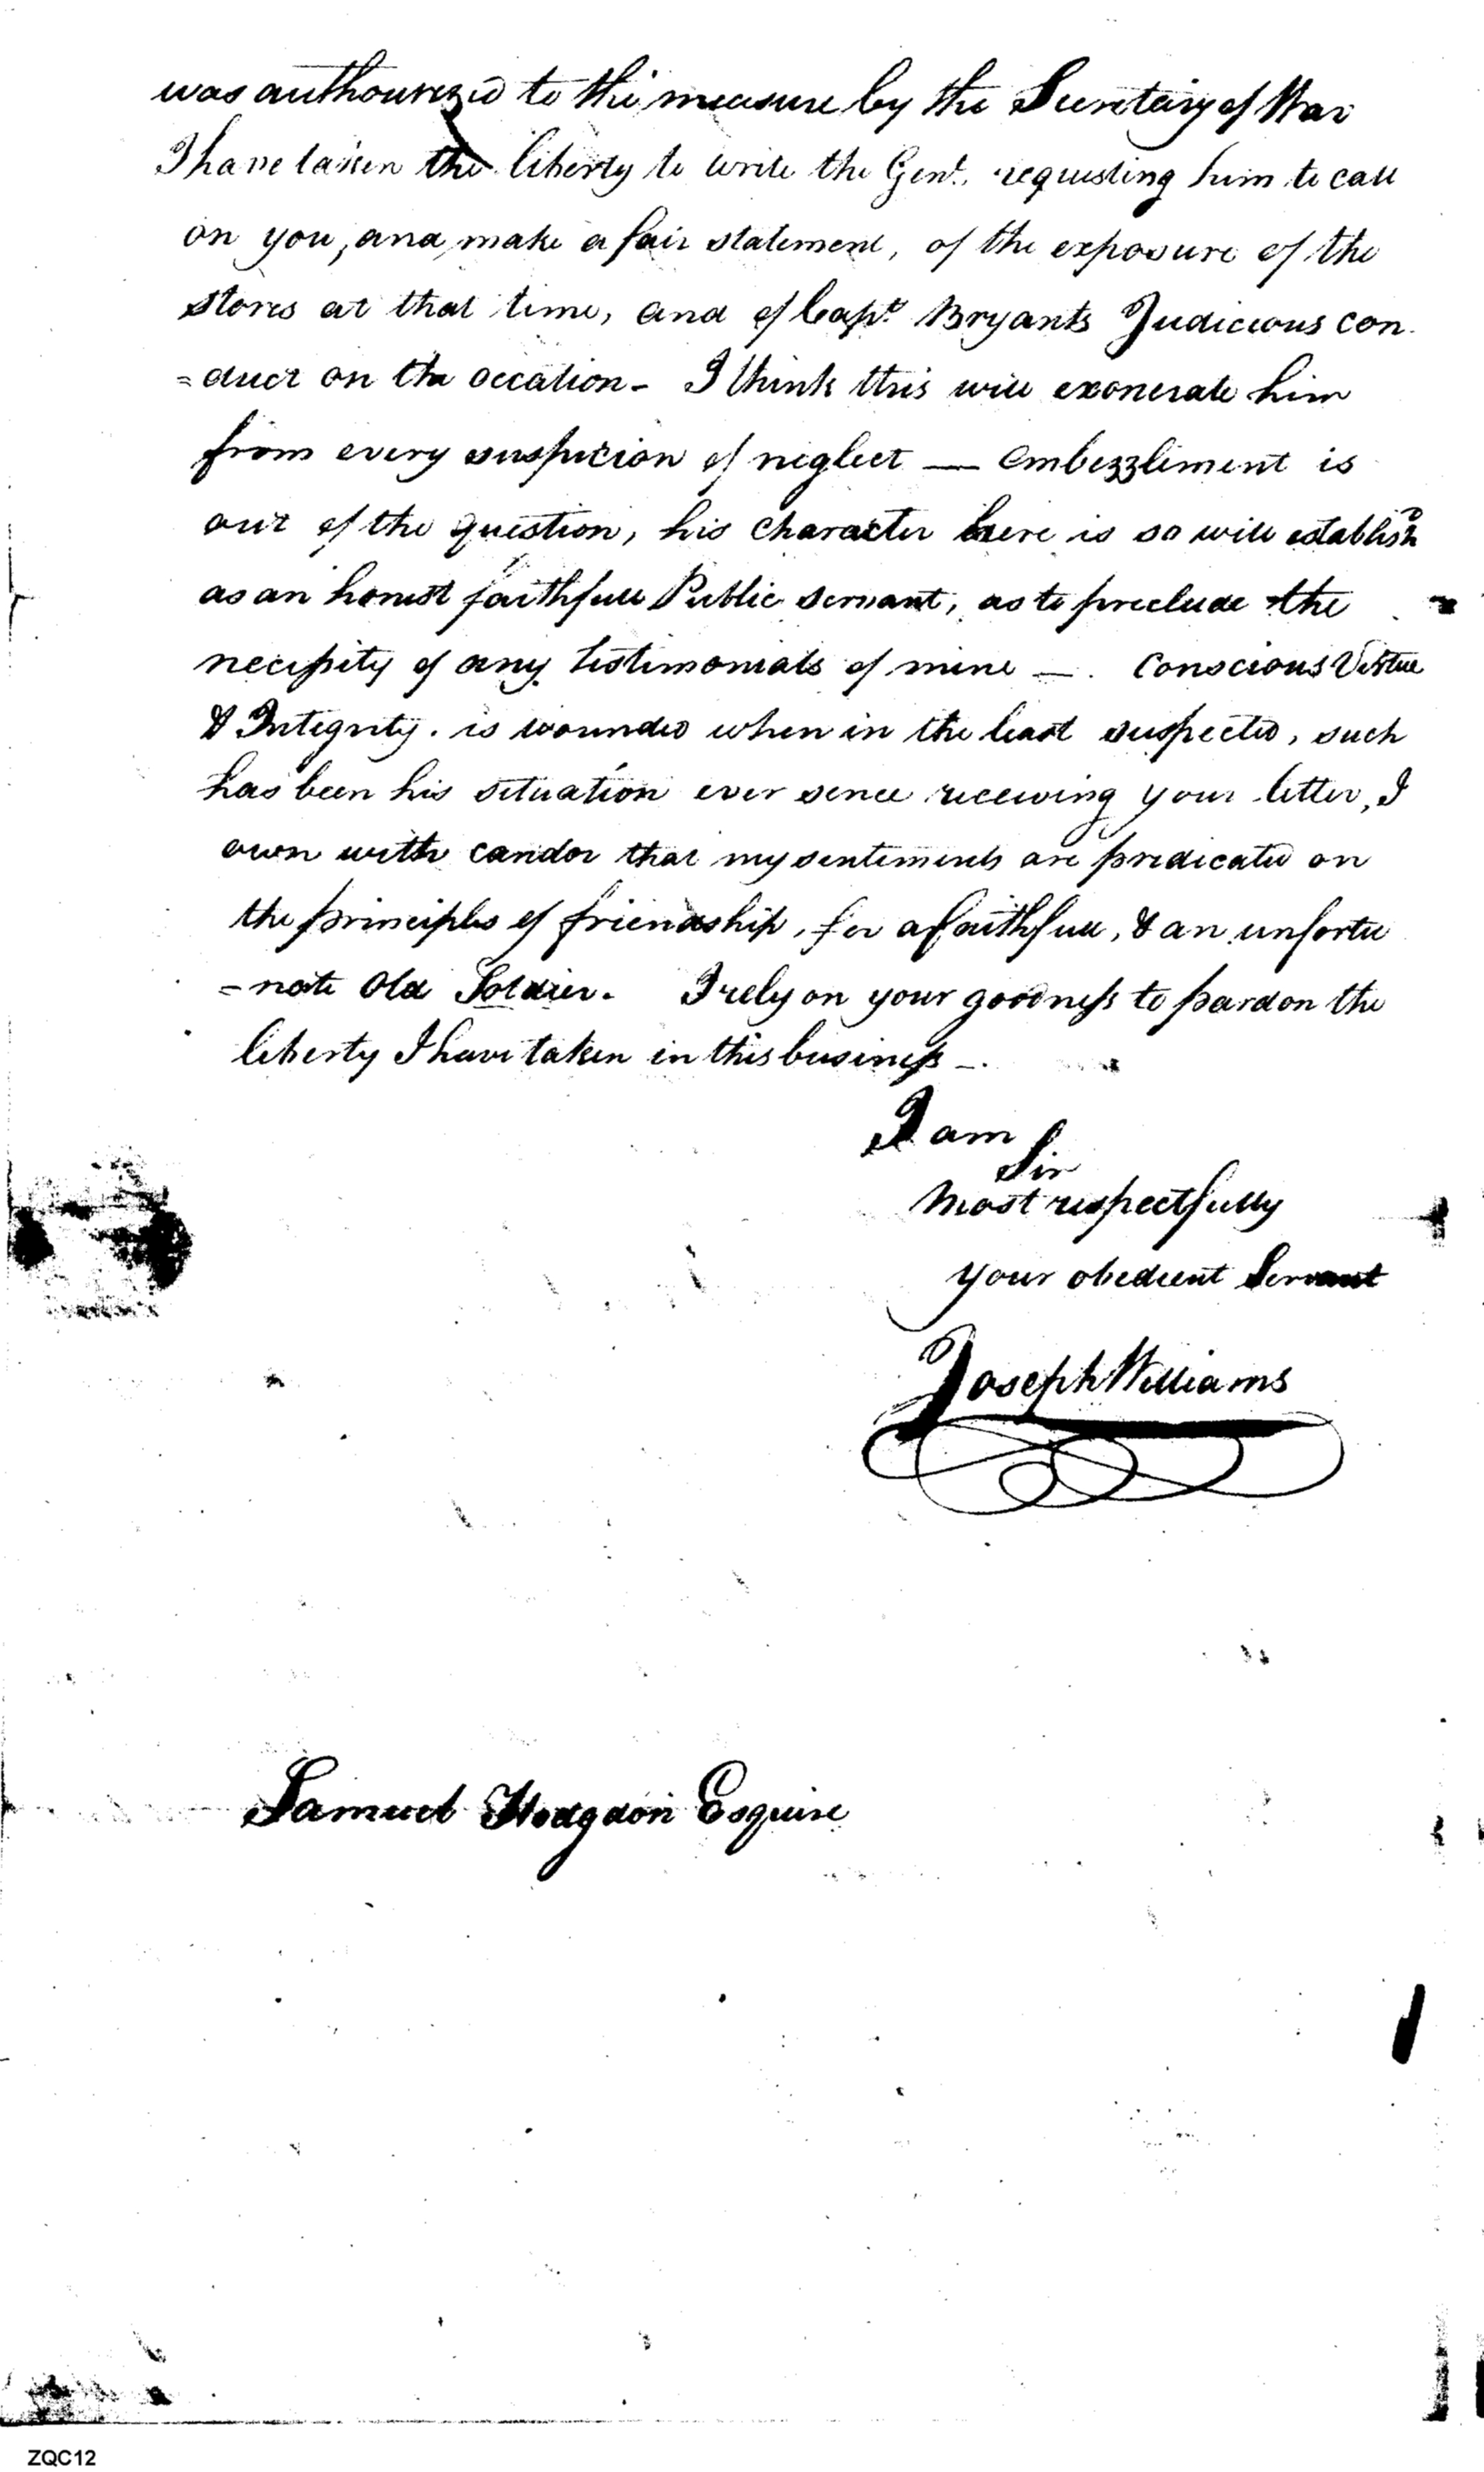 was authourized to the measure by the Secretary of War
I have taken the liberty to write the Gent. requesting him to call
on you, and make a fair statement, of the exposure of the
stores at that time, and of Capt Bryants Judicious con
=duct on the occation - I think this will exonerate him
from every suspicion of neglect — embezzliment is
out of the question, his character here is so will establishd
as an honest faithfull Public servant, as to preclude the
necessity of any testimonials of mine —. Conscious Virtue
& Integrity. is wounded when in the least suspected, such
has been his situation ever sence receiving your letter, I
own with candor that my sentiments are predicated on
the principles of friendship, for a faithfull, & an unfortu
=nate Old Soldier. I rely on your goodness to pardon the
liberty I have taken in this business -.
I am
Sir
Most respectfully
your obedient Servant
Joseph Williams
Samuel Hodgdon Esquire
ZQC12